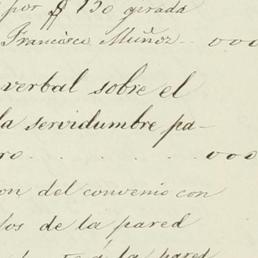 por $ 150 gerada
Francisco Muñoz ooo
verbal sobre el
la servidumbre pa-
ro . . . . . . . ooo
on del convenio con
los de la pared
la pared